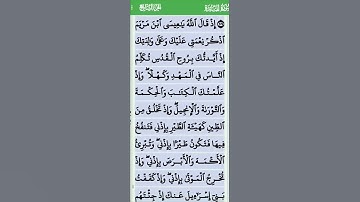 إِذْ قَالَ ٱللَّهُ يَٰعِيسَى ٱبْنَ مَرْيَمَ
ٱذْكُرْ نِعْمَتِى عَلَيْكَ وَعَلَىٰ وَٰلِدَتِكَ
إِذْ أَيَّدتُّكَ بِرُوحِ ٱلْقُدُسِ تُكَلِّمُ
ٱلنَّاسَ فِى ٱلْمَهْدِ وَكَهْلًا ۖ وَإِذْ
عَلَّمْتُكَ ٱلْكِتَٰبَ وَٱلْحِكْمَةَ
وَٱلتَّوْرَىٰةَ وَٱلْإِنجِيلَ ۖ وَإِذْ تَخْلُقُ مِنَ
ٱلطِّينِ كَهَيْـَٔةِ ٱلطَّيْرِ بِإِذْنِى فَتَنفُخُ
فِيهَا فَتَكُونُ طَيْرًۢا بِإِذْنِى ۖ وَتُبْرِئُ
ٱلْأَكْمَهَ وَٱلْأَبْرَصَ بِإِذْنِى ۖ وَإِذْ
تُخْرِجُ ٱلْمَوْتَىٰ بِإِذْنِى ۖ وَإِذْ كَفَفْتُ
بَنِىٓ إِسْرَٰٓءِيلَ عَنكَ إِذْ جِئْتَهُم